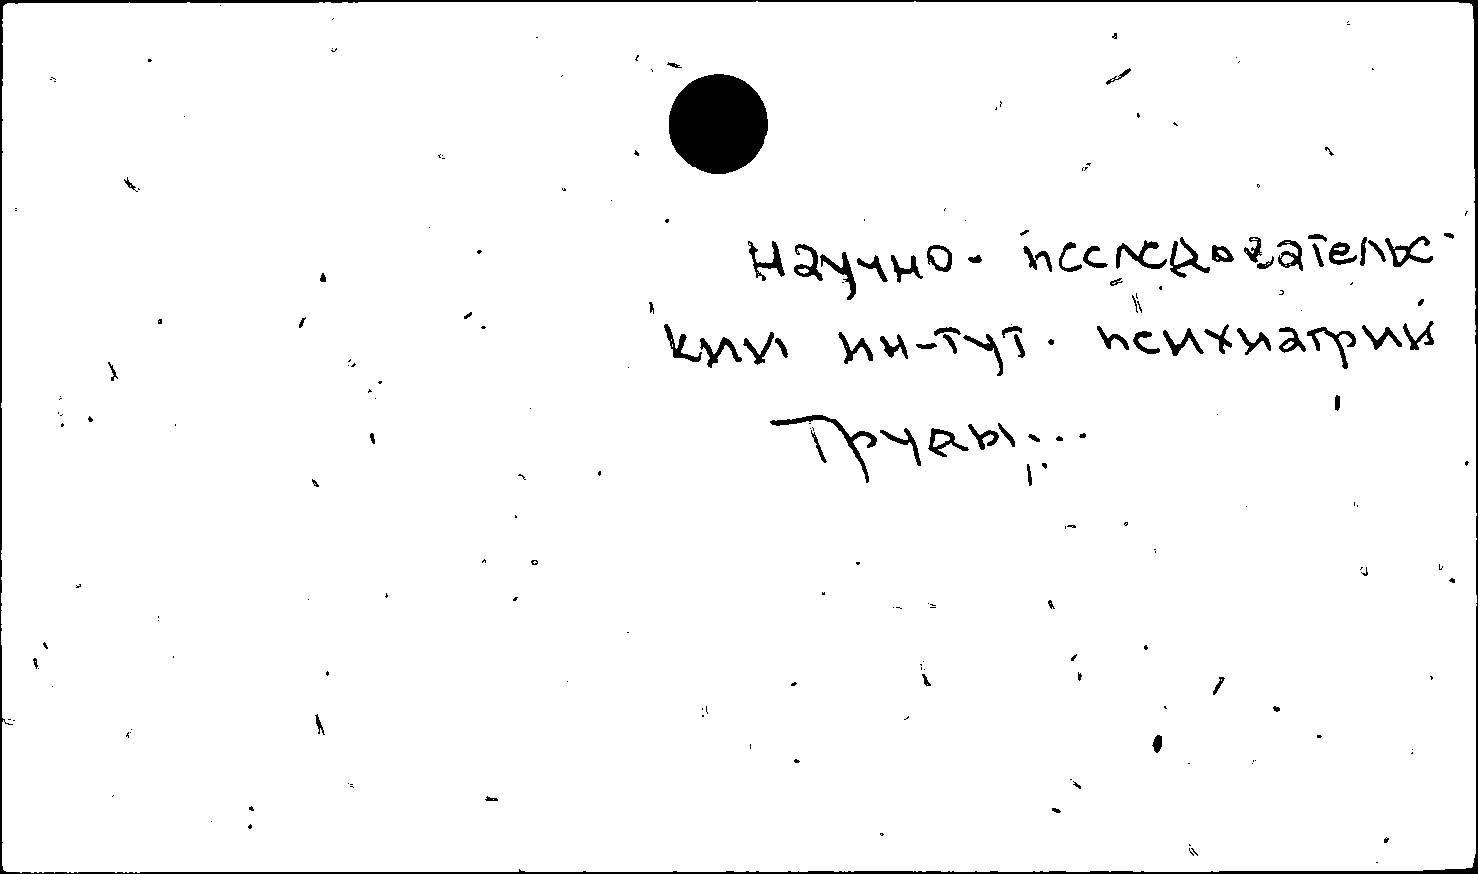 Научно-исследовательс-
кий ин-тут. психиатрии
Труды...